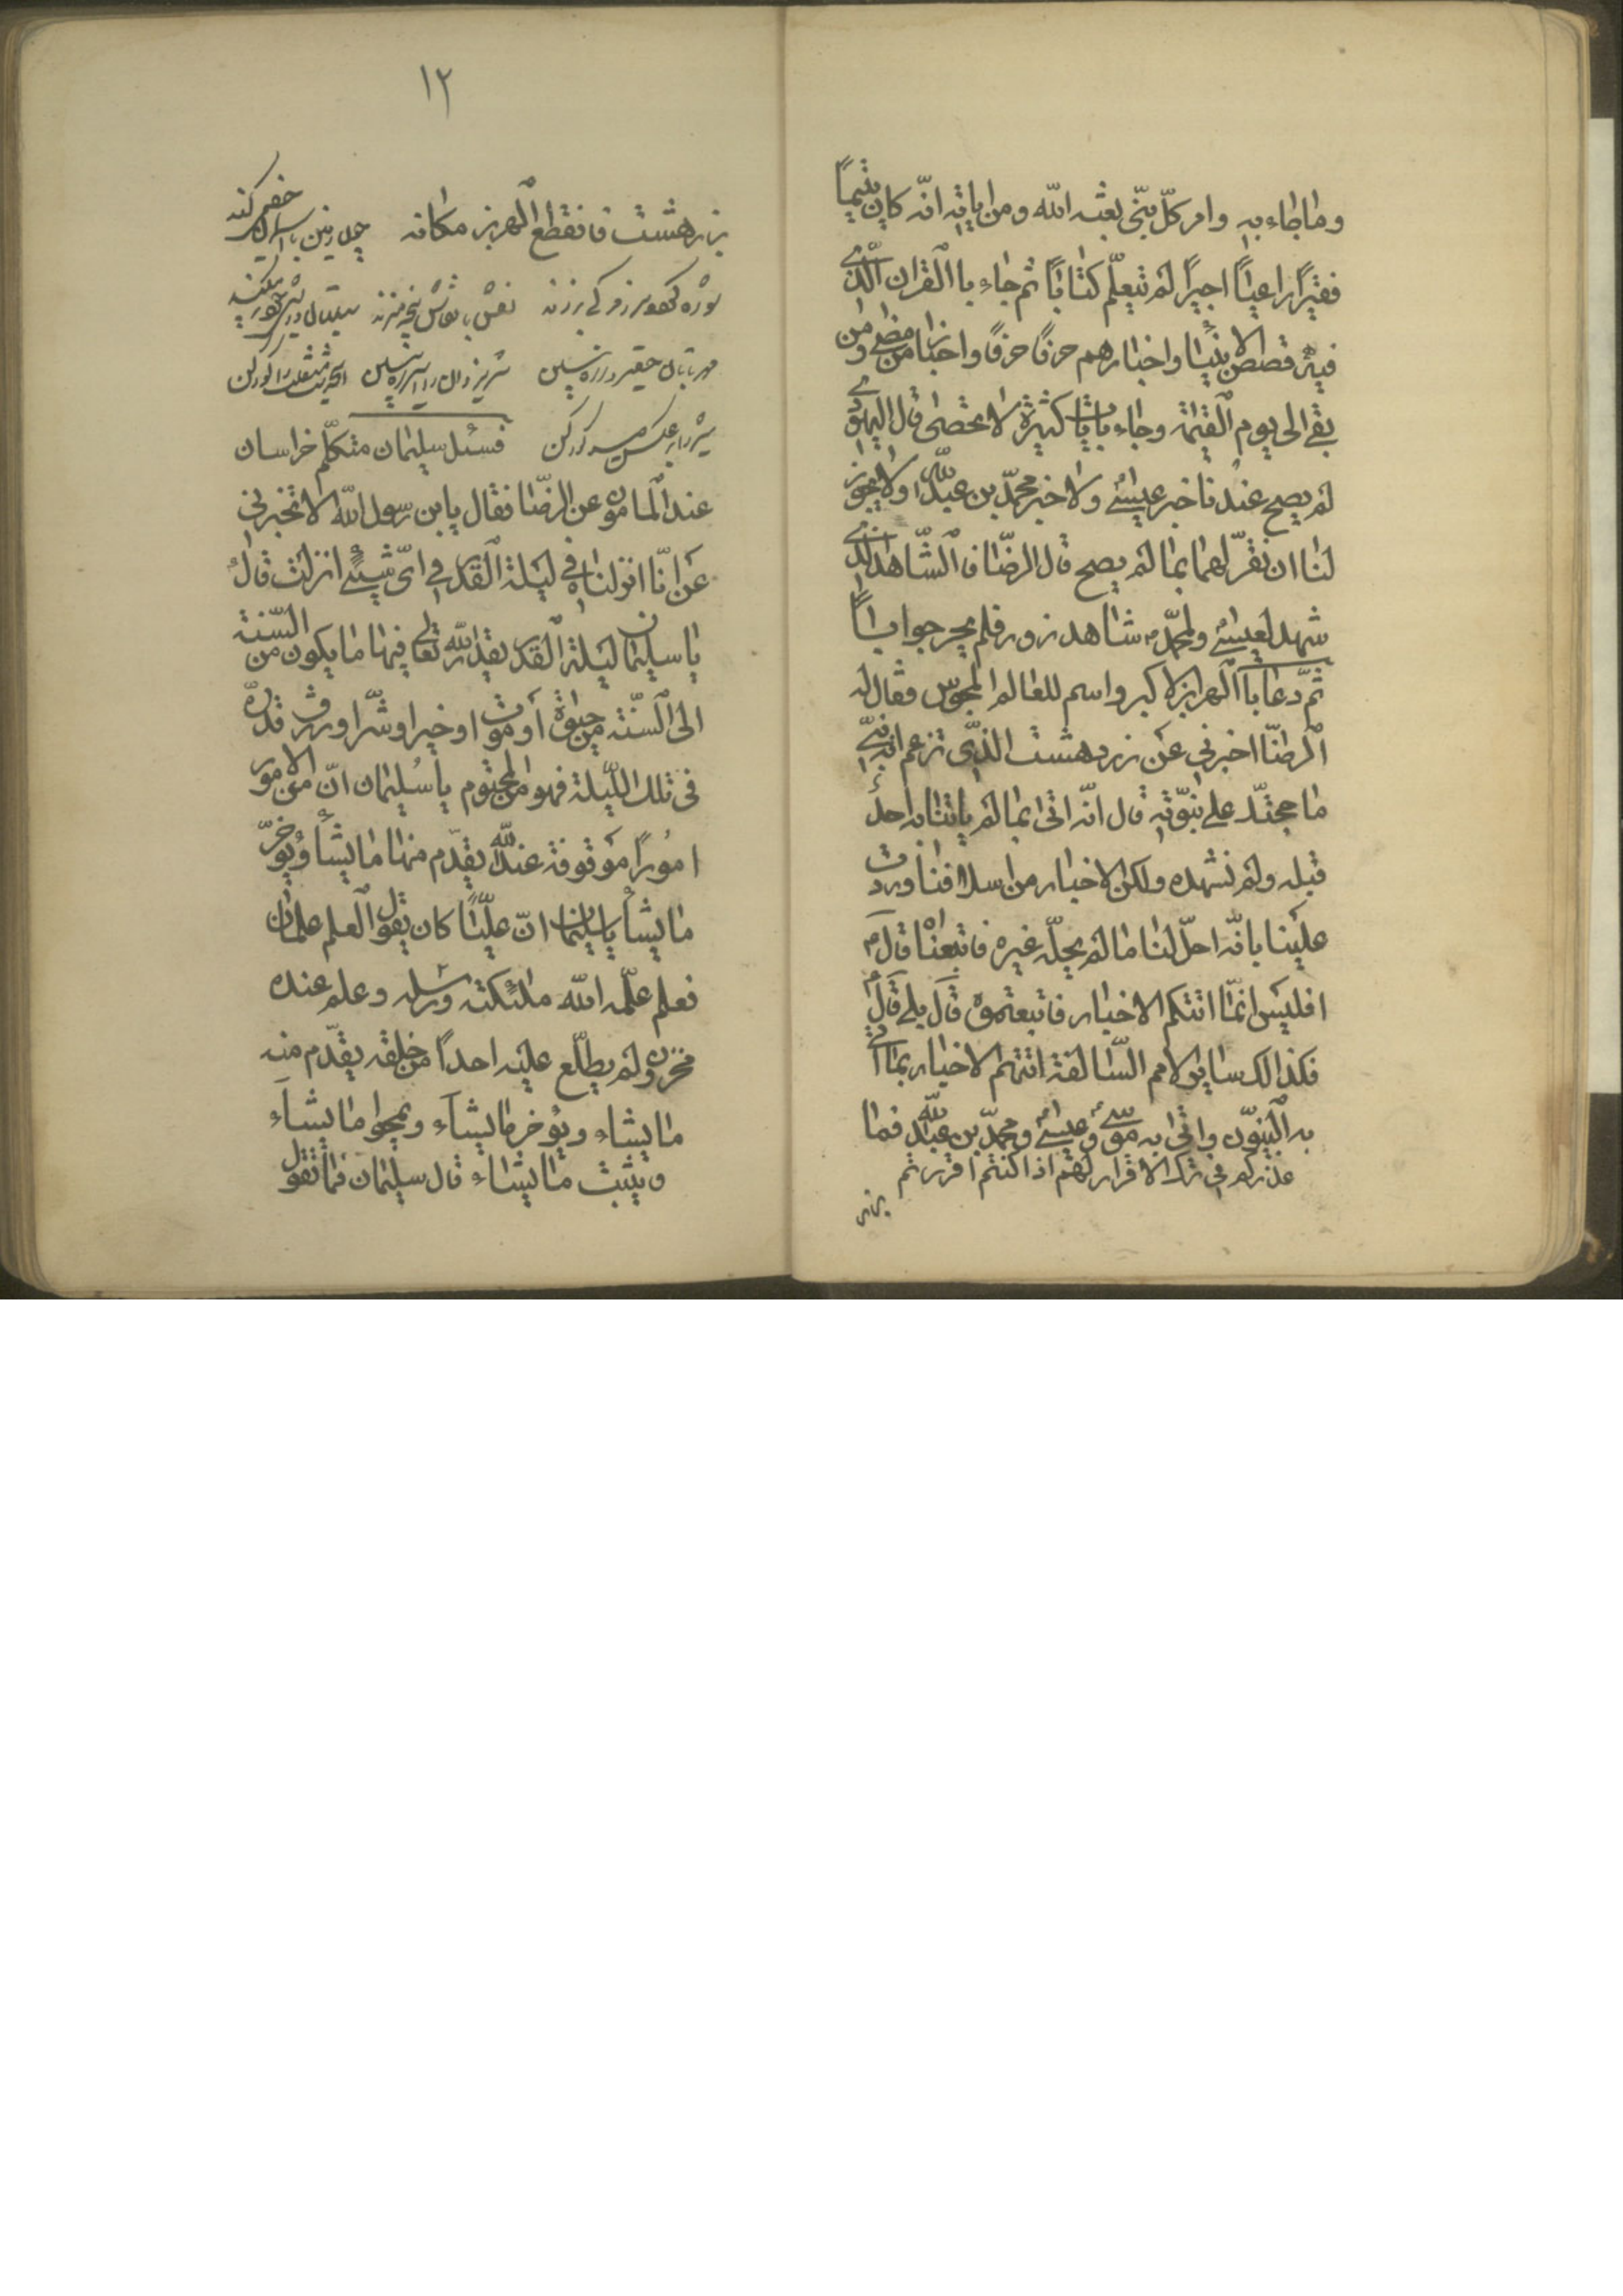 وما جاء به وامر كلّ نبيّ بعثه الله ومن اياته انّه كان يتيمًا
فقيرًا راعيًا اجيرًا لم يتعلّم كتابًا ثم جاء باالقران الّذى
فيه قصص الانبيا واخبارهم حرفًا حرفًا واخبار من مضى ومن
بقى الى يوم القيمة وجاء بايات كثيرة لا تحصى قال اليهودى
لم يصح عندنا خبر عيسى ولا خبر محمّد بن عبدالله ولا يجوز
لنا ان نقرّ لهما بما لم يصح قال الرضا فالشّاهد الذى
شهد لعيسى ولمحمّد شاهد زور فلم يحر جوابًا
ثمّ دعا باالهربز الاكبر واسم للعالم المجوس فقال له
الرضّا اخبرنى عن زردهشت الذّى تزعم انه نبىّ
ما حجتك على نبوّته قال انّه اتى بما لم ياتنا به احد
قبله ولم نشهده ولكن الاخبار من اسلافنا وردت
علينا بانّه احلّ لنا ما لم يحلّه غيره فاتبعناه قال
افليس انمّا اتتكم الاخبار فاتبعتموه قال بلى قال
فكذالك ساير الامم السّالفة اتتهم الاخبار بما اتى
به النبيّون واتى به موسى وعيسى ومحمّد بن عبدالله فما
عذركم فى ترك الاقرار لهم اذا كنتم اقررتم
١٢
بزردهشت فانقطع الهربز مكانه
فسئل سليمان متكلّم خراسان
عند المامون عن الرضّا فقال يابن رسول الله الا تخبرنى
عن انّا انزلناه فى ليلة القدر فى اىّ شىء انزلت قال
يا سليمان ليلة القدر يقدر الله تعالى فيها ما يكون من السّنة
الى السّنة من حيوة او موت او خير او شّر او رزق قدّره
فى تلك اللّيلة فهو من المحتوم يا سليمان انّ من الامور
امورًا موقوفة عند الله يقدّم منها ما يشأ ويؤخّر
ما يشأ يا سليمان انّ عليًّا كان يقول العلم علمان
فعلم علّمه الله ملئكته ورسله وعلم عنده
مخزون لم يطلّع عليه احدًا من خلقه يقدّم منه
ما يشاء ويؤخر ما يشآء ويمحوا ما يشآء
ويثبت ما يشاء قال سليمان فما تقول